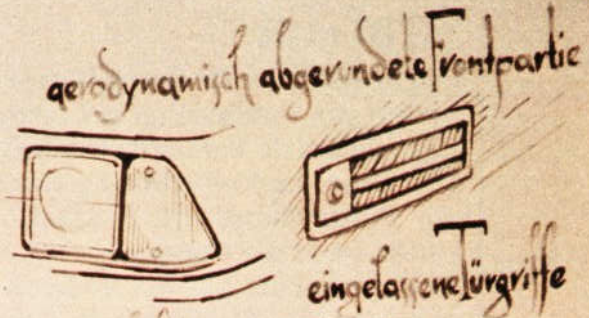 aerodynamisch abgerundete Frontpartie
eingelassene Türgriffe